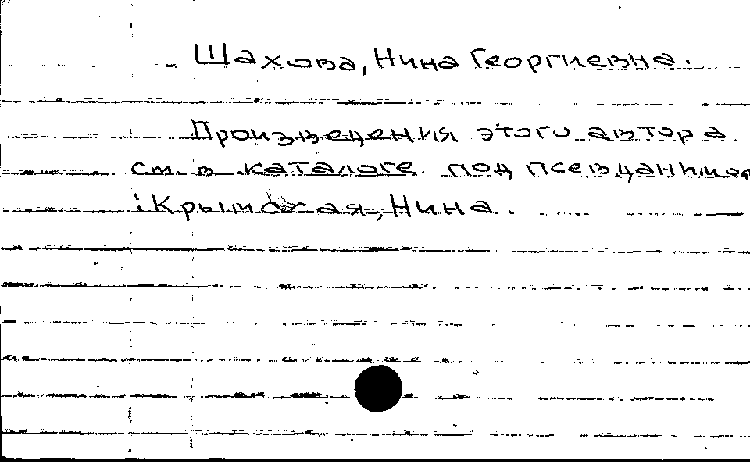 Шахова, Нина Георгиевна.
Произведения этого автора
см. в каталоге под псевданимом
: Крымская, Нина.